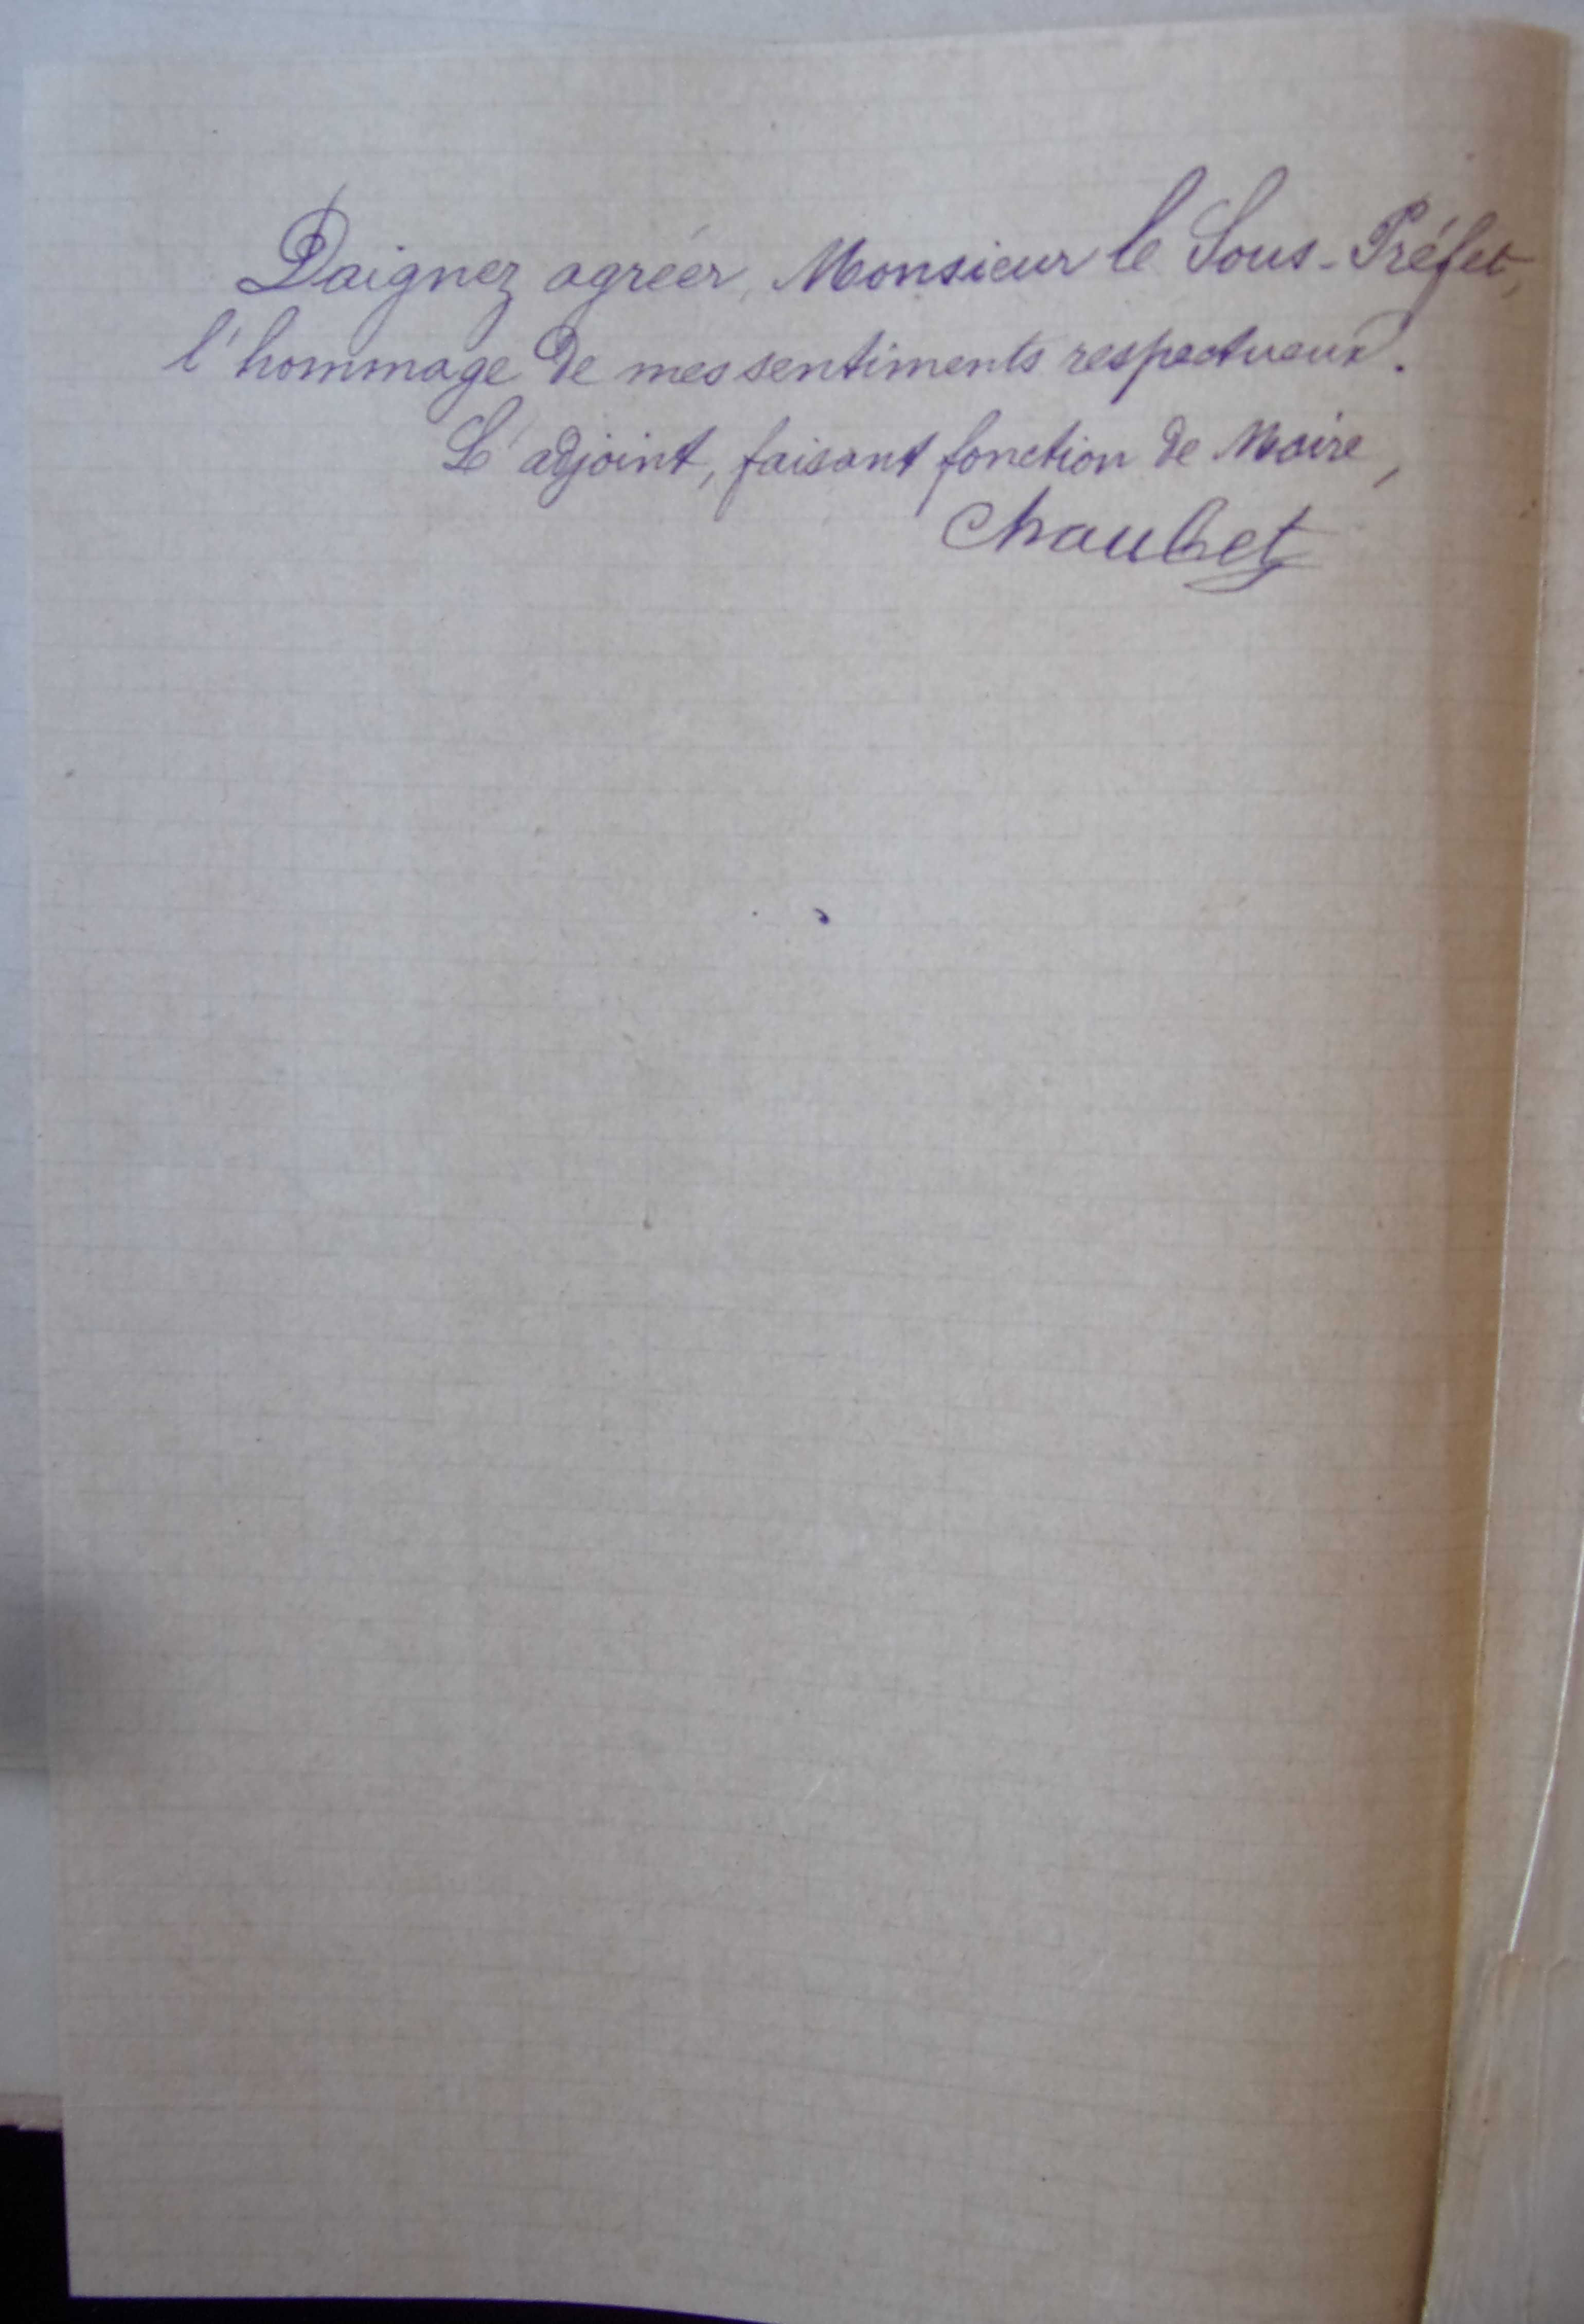 Daignez agréer, Monsieur le Sous-Préfet,
l'hommage de mes sentiments respectueux.
L'adjoint, faisant fonction de Maire,
Chaubet